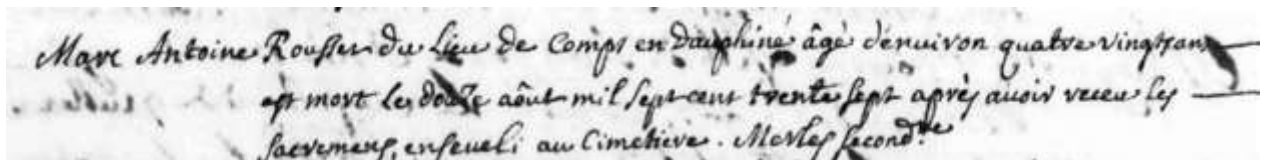 Marc Antoine Rousset du Lieu de Comps en Dauphiné âgé d'environ quatre vingts ans
est mort le douze aôut mil sept cent trente sept aprés auoir receu les
sacremens, enseueli au Cimetiere. Merles second.re